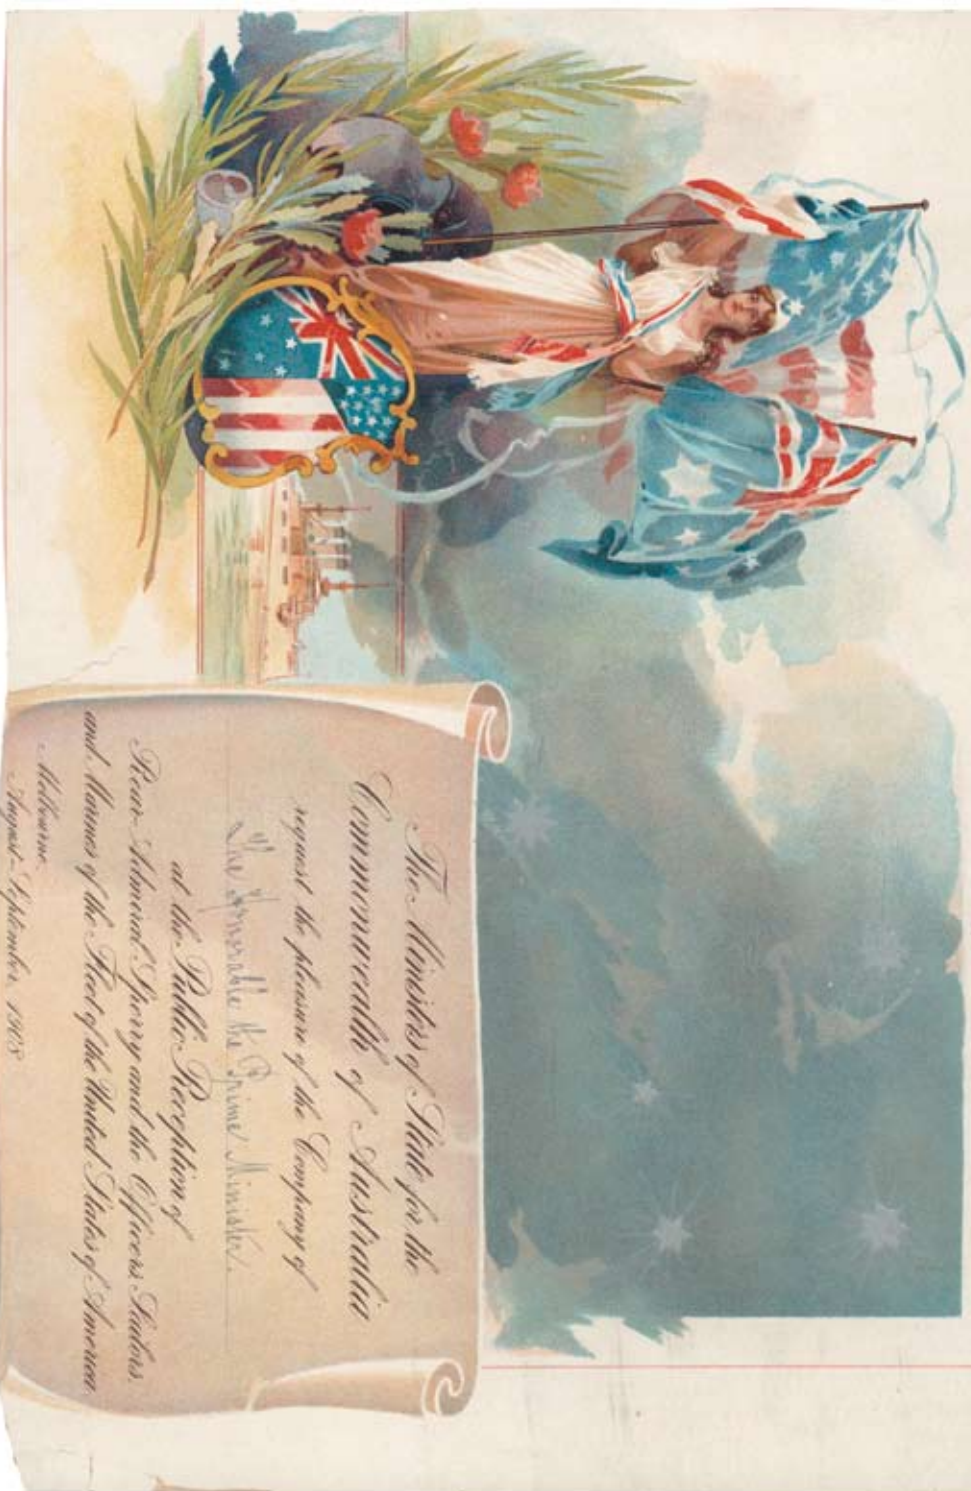 The Ministers of State for the
Commonwealth of Australia
request the pleasure of the Company of
The Honorable the Prime Minister
at the Public Reception of
Rear-Admiral Sperry and the Officers, Sailors,
and Marines of the Fleet of the United States of America.
Melbourne.
August-September, 1908